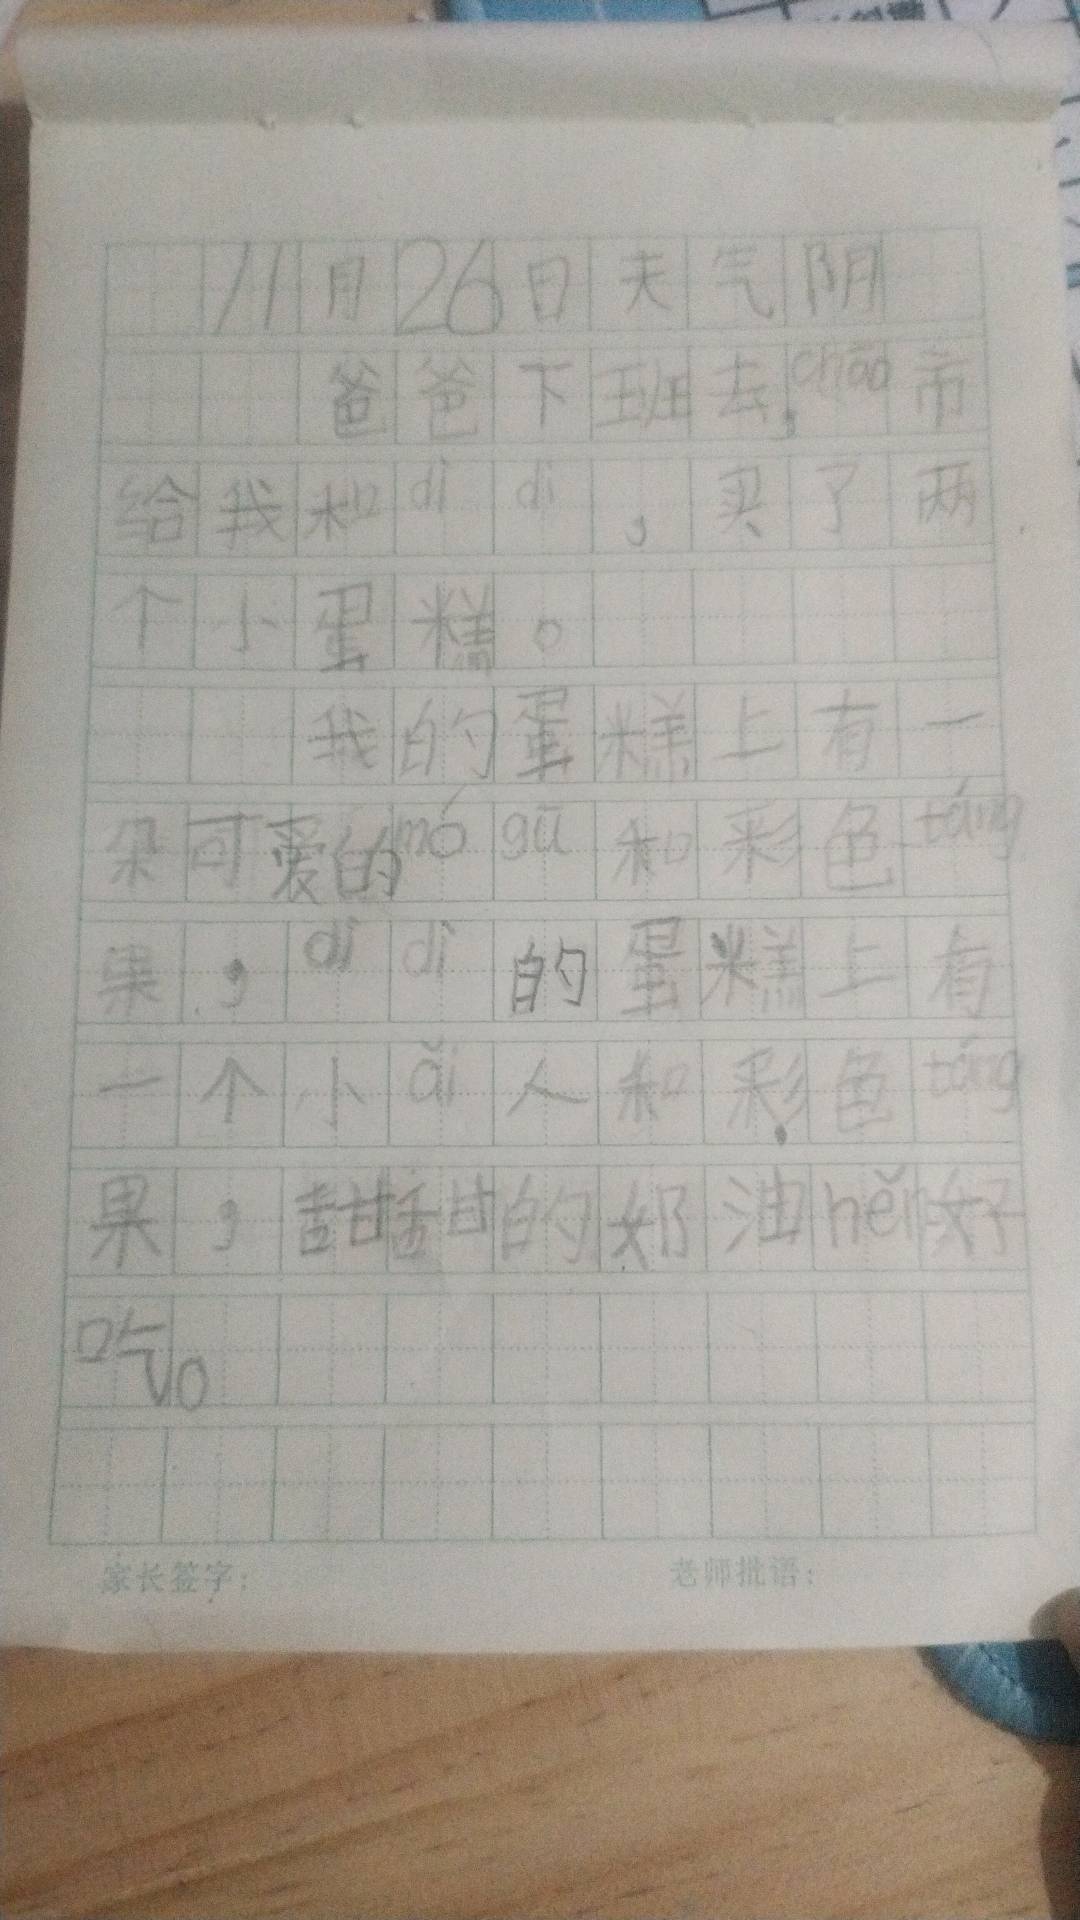 11月26日天气阴
爸爸下班去,chāo市
给我和dì dì,买了两
个小蛋糕。
我的蛋糕上有一
朵可爱的mó gū和彩色táng
果,dì dì的蛋糕上有
一个小ǎi人和彩色táng
果,甜甜的奶油hěn好
吃。
家长签字:
老师批语: